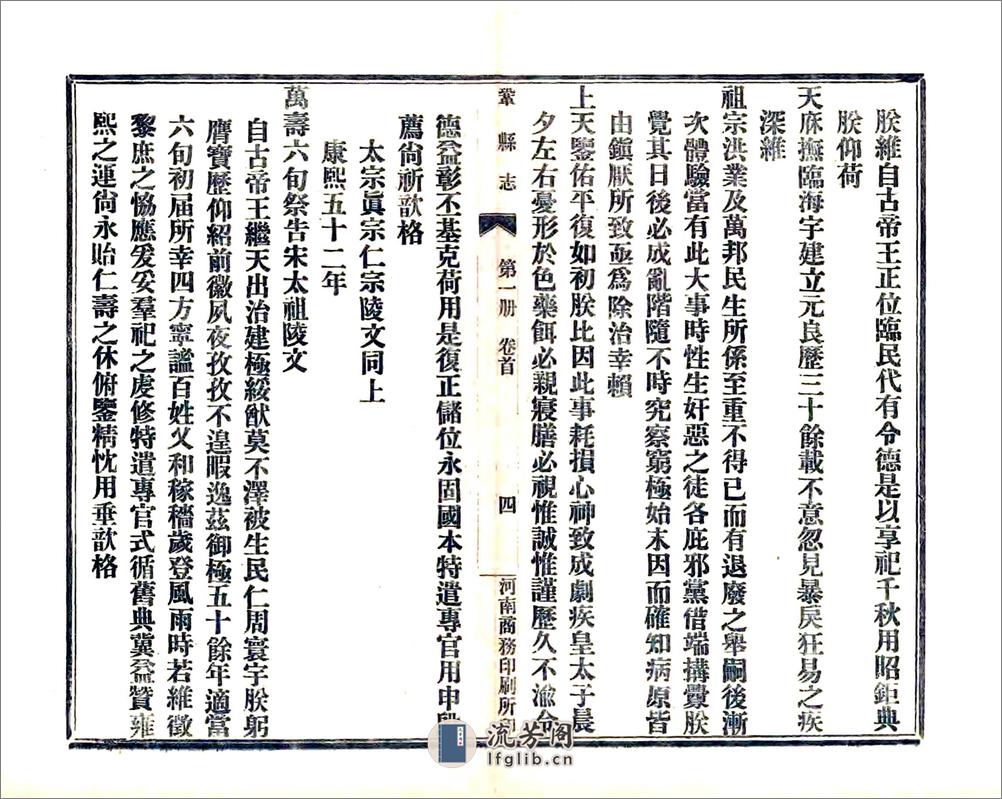 朕維自古帝王正位臨民代有令德是以享祀千秋用昭鉅典
朕仰荷
天庥撫臨海宇建立元良歷三十餘載不意忽見暴戾狂易之疾
深維
祖宗洪業及萬邦民生所係至重不得已而有退廢之舉嗣後漸
次體驗當有此大事時性生奸惡之徒各庇邪黨借端搆釁朕
覺其日後必成亂階隨不時究察窮極始末因而確知病原皆
由鎭厭所致亟爲除治幸賴
上天鑒佑平復如初朕比因此事耗損心神致成劇疾皇太子晨
夕左右憂形於色藥餌必親寢膳必視惟誠惟謹歷久不渝令
鞏縣志 第一册 卷首 四 河南商務印刷所
德益彰丕基克荷用是復正儲位永固國本特遣專官用申
薦尙祈歆格
太宗眞宗仁宗陵文同上
康熙五十二年
萬壽六旬祭告宋太祖陵文
自古帝王繼天出治建極綏猷莫不澤被生民仁周寰宇朕躬
膺寶歷仰紹前徽夙夜孜孜不遑暇逸茲御極五十餘年適當
六旬初屆所幸四方寧謐百姓乂和稼穡歲登風雨時若維徵
黎庶之恊應爰妥羣祀之虔修特遣專官式循舊典冀益贊雍
熙之運尙永貽仁壽之休俯鑒精忱用垂歆格
流芳阁
lfglib.cn